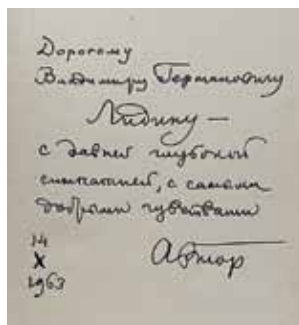 Дорогому
Владимиру Германовичу
Лидину —
с давней глубокой
симпатией, с самыми
добрыми чувствами
Автор
14
X
1963